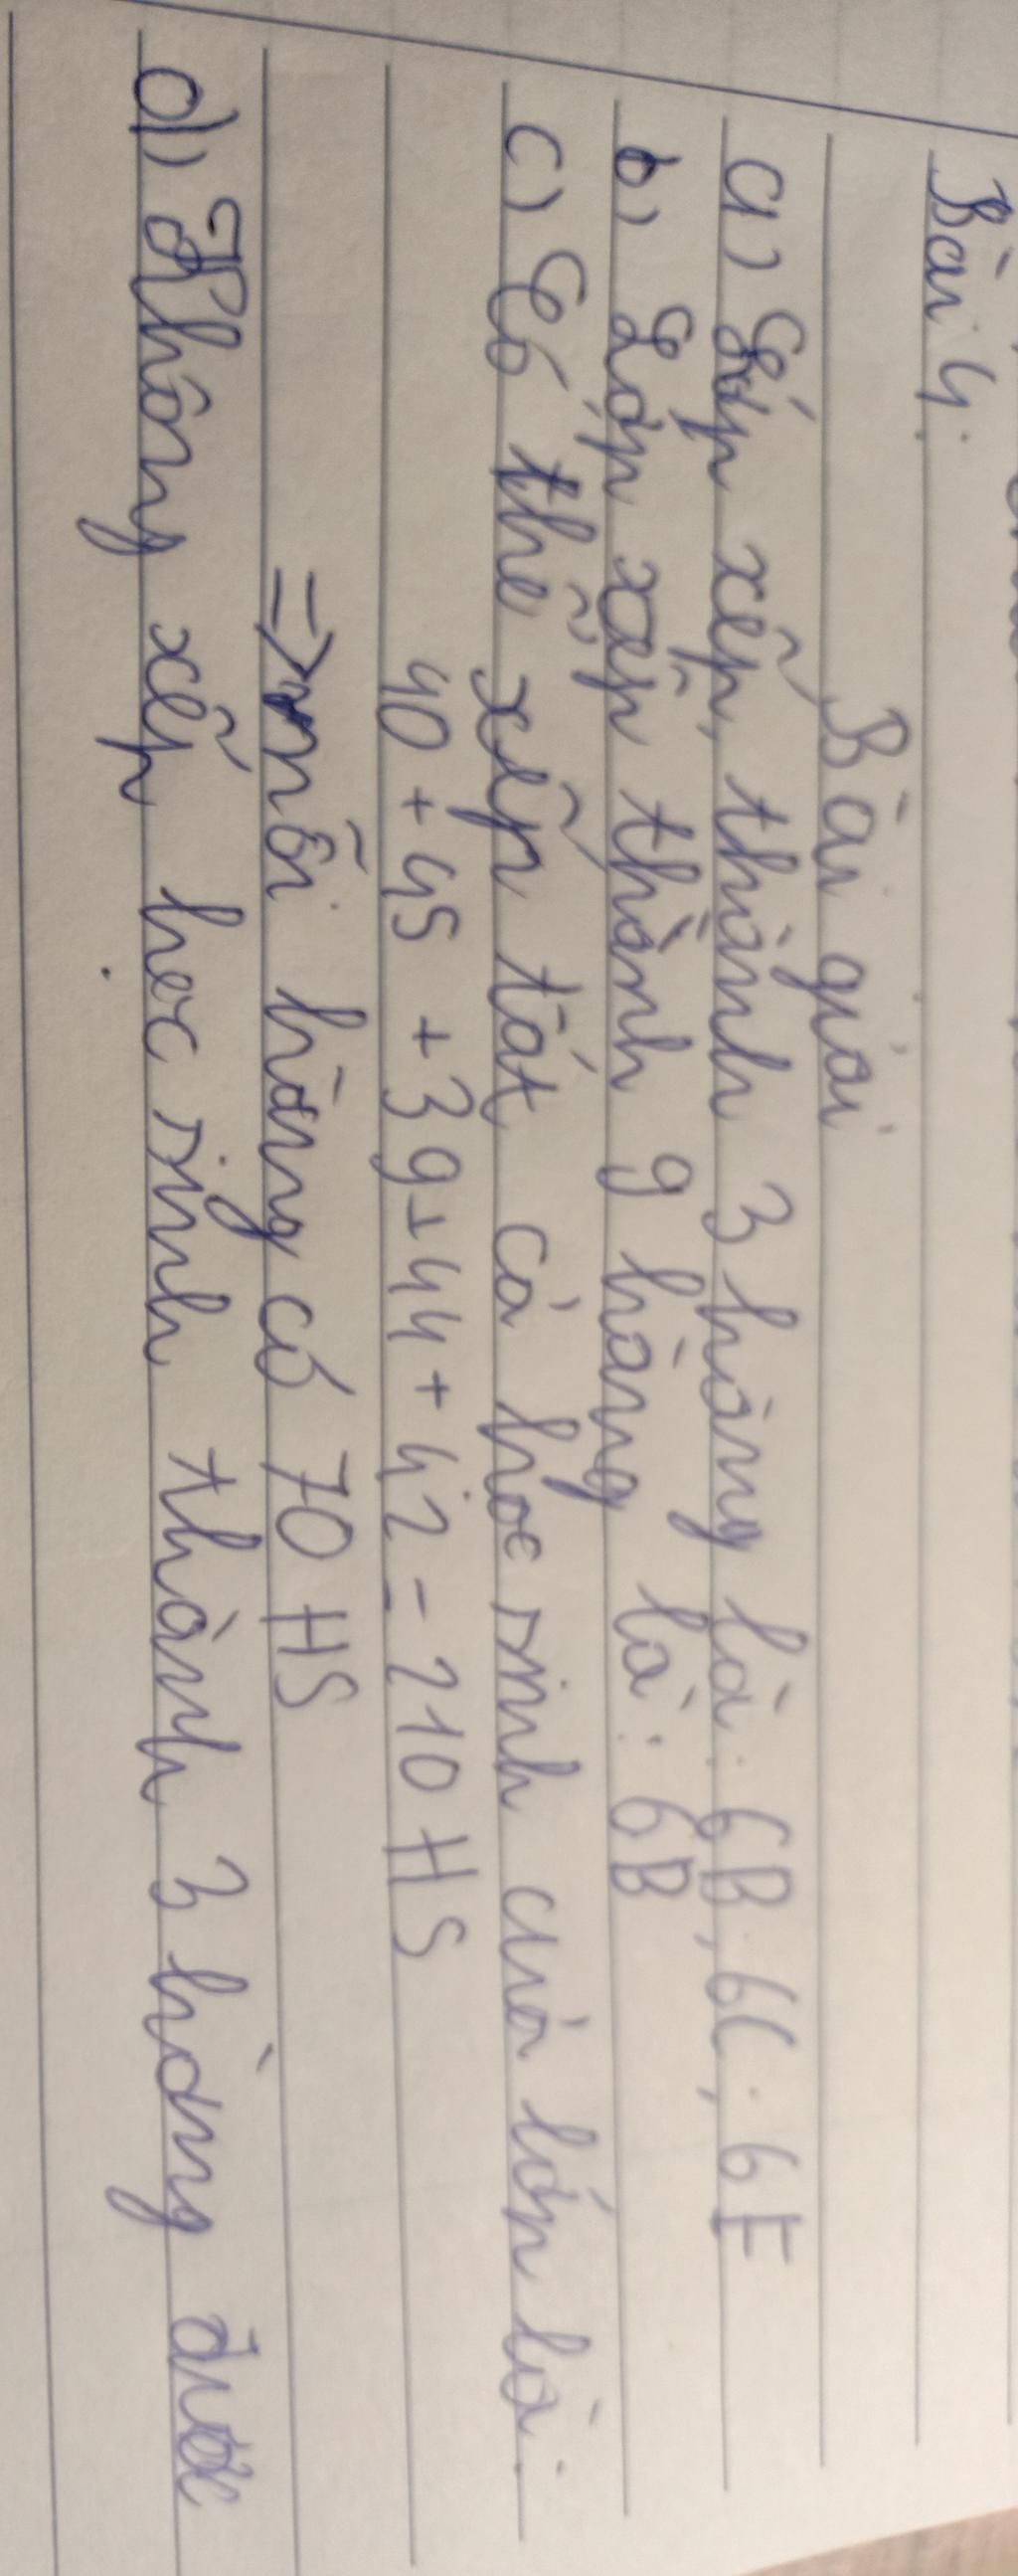 Bài 4:
Bài giải
a) Lớp xếp thành 3 hàng là: 6B, 6C, 6E
b) Lớp xếp thành 9 hàng là: 6B
c) Có thể xếp tất cả học sinh của lớp là:
40 + 45 + 39 + 44 + 42 = 210 HS
=> mỗi hàng có 70 HS
d) Không xếp học sinh thành 3 hàng được